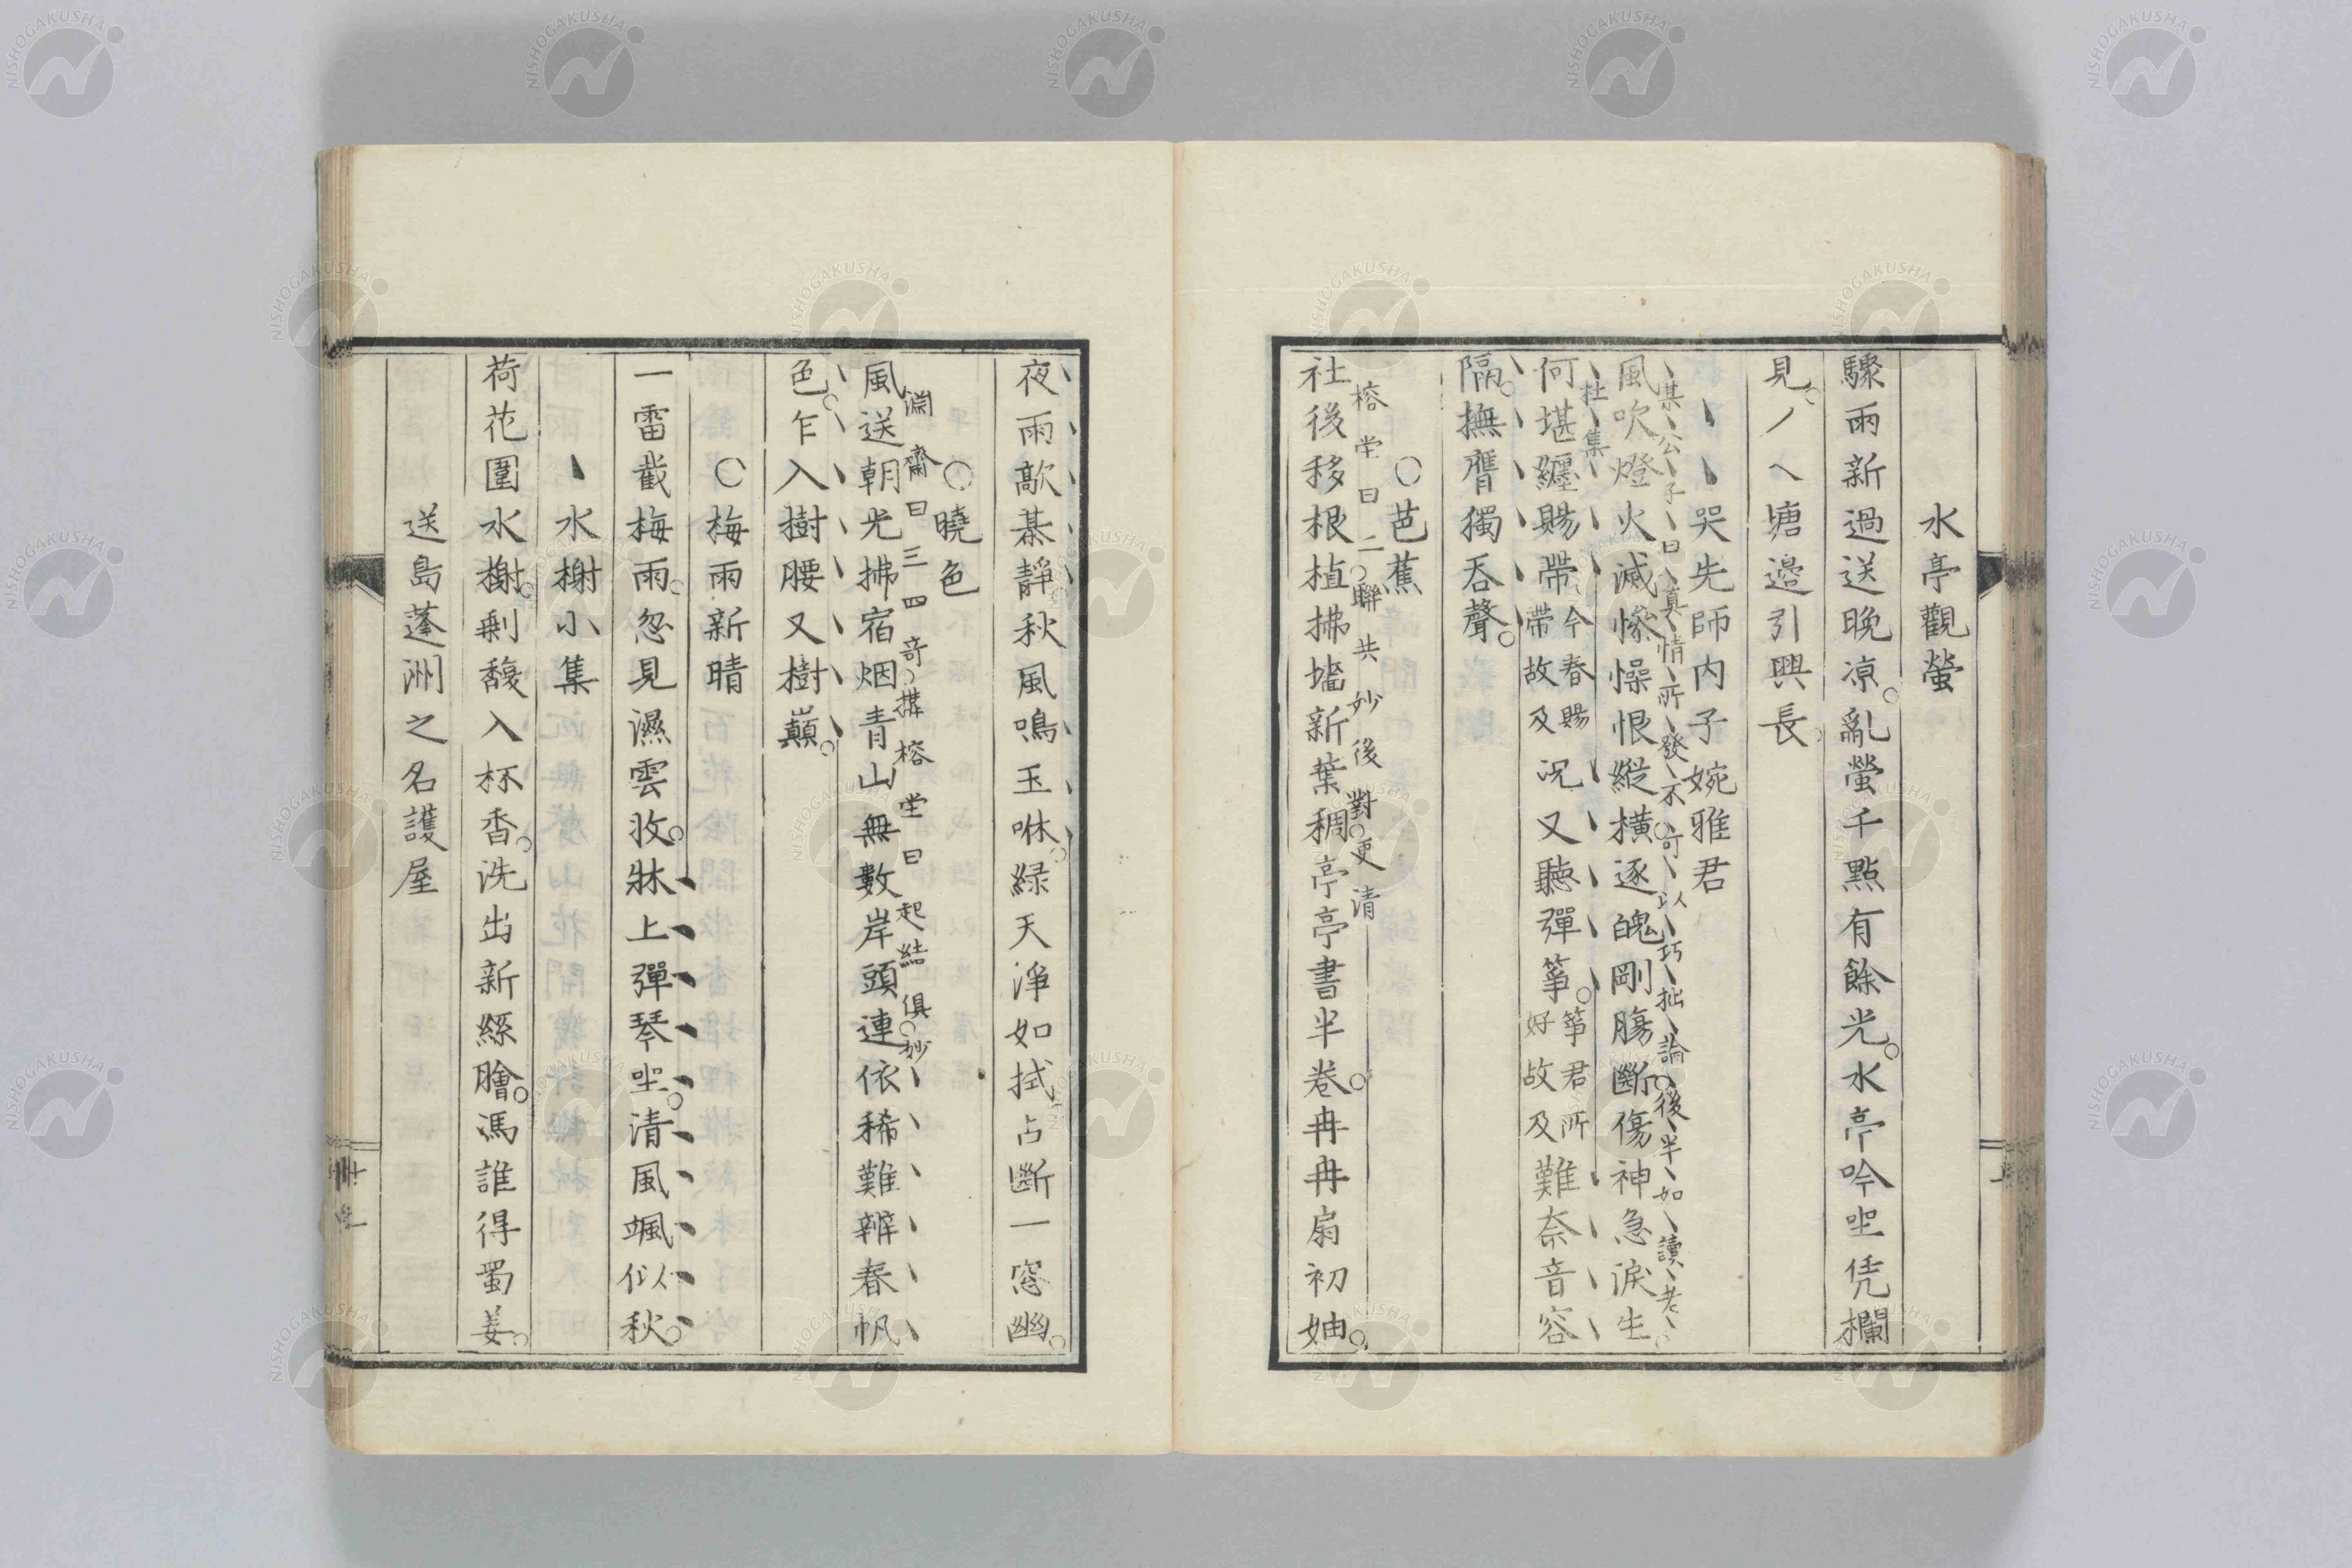 水亭觀螢
驟雨新過送晩凉亂螢千點有餘光水亭吟坐凭欄
見ノヘ塘邉引興長
哭先師内子婉雅君
某公子曰真情所發不可以巧拙論後半如讀老
杜集
風吹燈火滅慘悽恨縱横逐魄剛膓斷傷神急淚生
何堪纒賜帶今春賜帶故及況又聽彈筝筝君所好故及難奈音容
隔撫膺獨吞聲
〇芭蕉
榕堂曰二聯共妙後對更清
社後移根植拂墻新葉稠亭亭書半卷冉冉扇初妯
夜雨歊棊靜秋風鳴玉咻緑天淨如拭占斷一窓幽
〇曉色
淵齋曰三四奇搆榕堂曰起結俱妙
風送朝光拂宿烟青山無數岸頭連依稀難辨春帆
色乍入樹腰又樹巓
〇梅雨新晴
一雷截梅雨忽見濕雲收牀上彈琴坐清風颯似秋
水榭小集
荷花圍水榭剩馥入杯香洗出新絲膾馮誰得蜀姜
送島蓬洲之名護屋